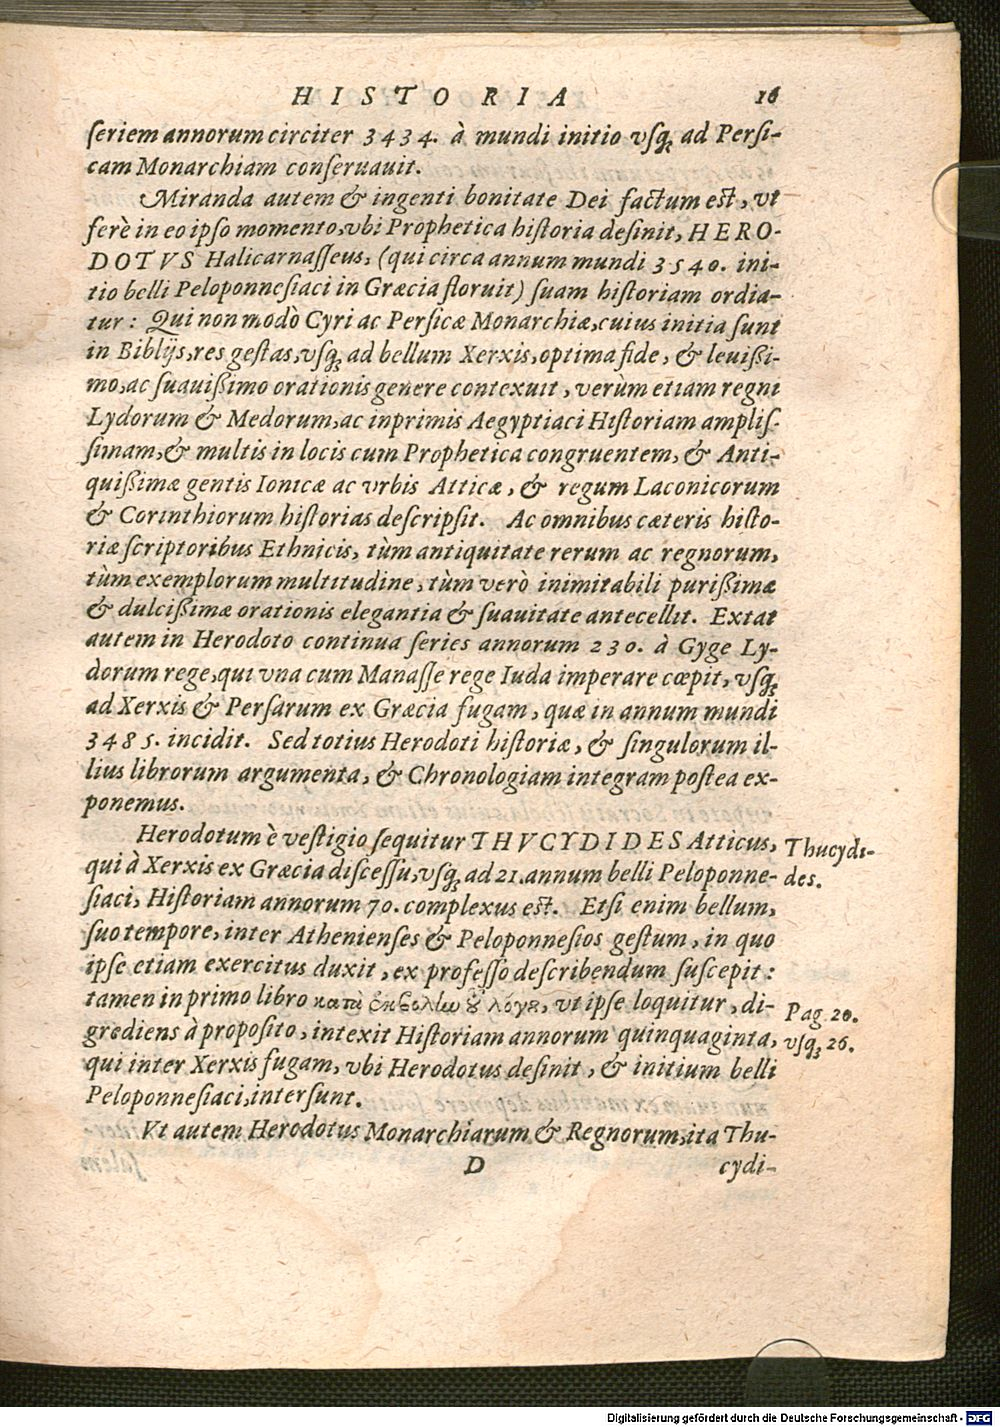 HISTORIA 16
seriem annorum circiter 3434. à mundi initio vsq; ad Persi-
cam Monarchiam conseruauit.
Miranda autem & ingenti bonitate Dei factum est, vt
ferè in eo ipso momento, vbi Prophetica historia desinit, HERO-
DOTVS Halicarnasseus, (qui circa annum mundi 3540. ini-
tio belli Peloponnesiaci in Græcia floruit) suam historiam ordia-
tur: Qui non modò Cyri ac Persicæ Monarchiæ, cuius initia sunt
in Biblijs, res gestas, vsq; ad bellum Xerxis, optima fide, & leuißi-
mo, ac suauißimo orationis genere contexuit, verùm etiam regni
Lydorum & Medorum, ac inprimis Aegyptiaci Historiam amplis-
simam, & multis in locis cum Prophetica congruentem, & Anti-
quißimæ gentis Ionicæ ac vrbis Atticæ, & regum Laconicorum
& Corinthiorum historias descripsit. Ac omnibus cæteris histo-
riæ scriptoribus Ethnicis, tùm antiquitate rerum ac regnorum,
tùm exemplorum multitudine, tùm verò inimitabili purißimæ
& dulcißimæ orationis elegantia & suauitate antecellit. Extat
autem in Herodoto continua series annorum 230. à Gyge Ly-
dorum rege, qui vna cum Manasse rege Iuda imperare cœpit, vsq;
ad Xerxis & Persarum ex Græcia fugam, quæ in annum mundi
3485. incidit. Sed totius Herodoti historiæ, & singulorum il-
lius librorum argumenta, & Chronologiam integram postea ex-
ponemus.
Herodotum è vestigio sequitur THVCYDIDES Atticus,
qui à Xerxis ex Græcia discessu, vsq; ad 21. annum belli Peloponne-
siaci, Historiam annorum 70. complexus est. Etsi enim bellum,
suo tempore, inter Athenienses & Peloponnesios gestum, in quo
ipse etiam exercitus duxit, ex professo describendum suscepit:
tamen in primo libro κατὰ ἐκβολὴν τοῦ λόγου, vt ipse loquitur, di-
grediens à proposito, intexit Historiam annorum quinquaginta,
qui inter Xerxis fugam, vbi Herodotus desinit, & initium belli
Peloponnesiaci, intersunt.
Vt autem Herodotus Monarchiarum & Regnorum, ita Thu-
D cydi-
Thucydi-
des.
Pag. 20.
vsq; 26.
Digitalisierung gefördert durch die Deutsche Forschungsgemeinschaft - DFG